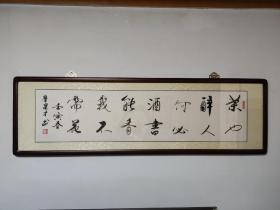 茶也
醉人
何必
酒書
能香
我不
需花
壬寅春